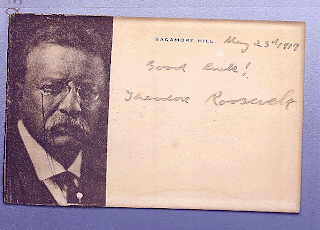 SAGAMORE HILL May 23rd 1919
Good luck!
Theodore Roosevelt